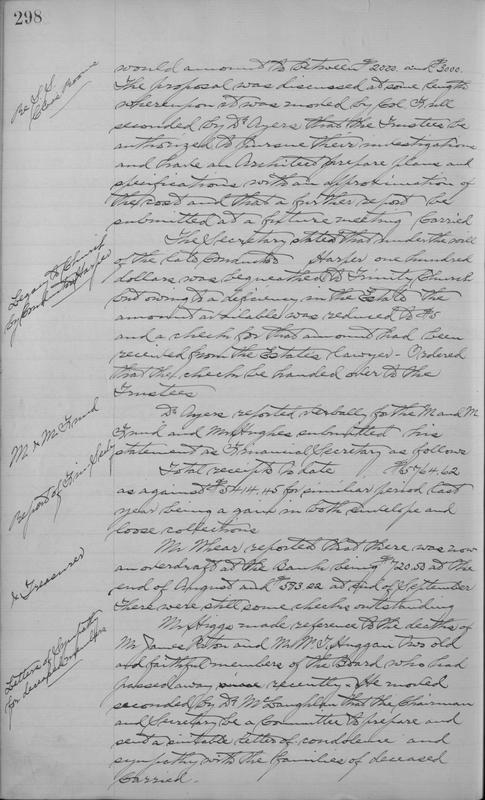 298
would amount to between $2000. and $3000.
The proposal was discussed at some length
whereupon it was moved by Col Hull
seconded by Dr Ayers that the Trustees be
authorized to pursue their investigations
and have an Architect prepare plans and
specifications with an approximation of
the cost and that a further report be
submitted at a future meeting Carried
Legacy to Church
by Harper
The Secretary stated that under the will
of the late Harper one hundred
dollars was bequeathed to Trinity Church
but owing to a deficiency in the Estate the
amount available was reduced to
and a check for that amount had been
received from the Estates lawyer - Ordered
that the check be handed over to the
Trustees
M & M Fund
Dr Ayers reported verbally for the M and M
Report of Fin Secty
Fund and Mr Hughes submitted his
statement as Financial Secretary as follows
Total receipts to date $5764.62
as against $5414.45 for similar period last
year being a gain in both envelope and
loose collections
& Treasurer
Mr Mhear reported that there was now
an overdraft at the Bank being $720.53 at the
end of August and $593.22 at end of September
There were still some checks outstanding
Letters of Sympathy
for deceased members
Mr Higgs made reference to the deaths of
Mr James Paton and Mr Wm T. Huggan two old
and faithful members of the Board who had
passed away since recently - He moved
seconded by Dr McLaughlin that the Chairman
and Secretary be a Committee to prepare and
send a suitable letter of condolence and
sympathy with the families of deceased
Carried -